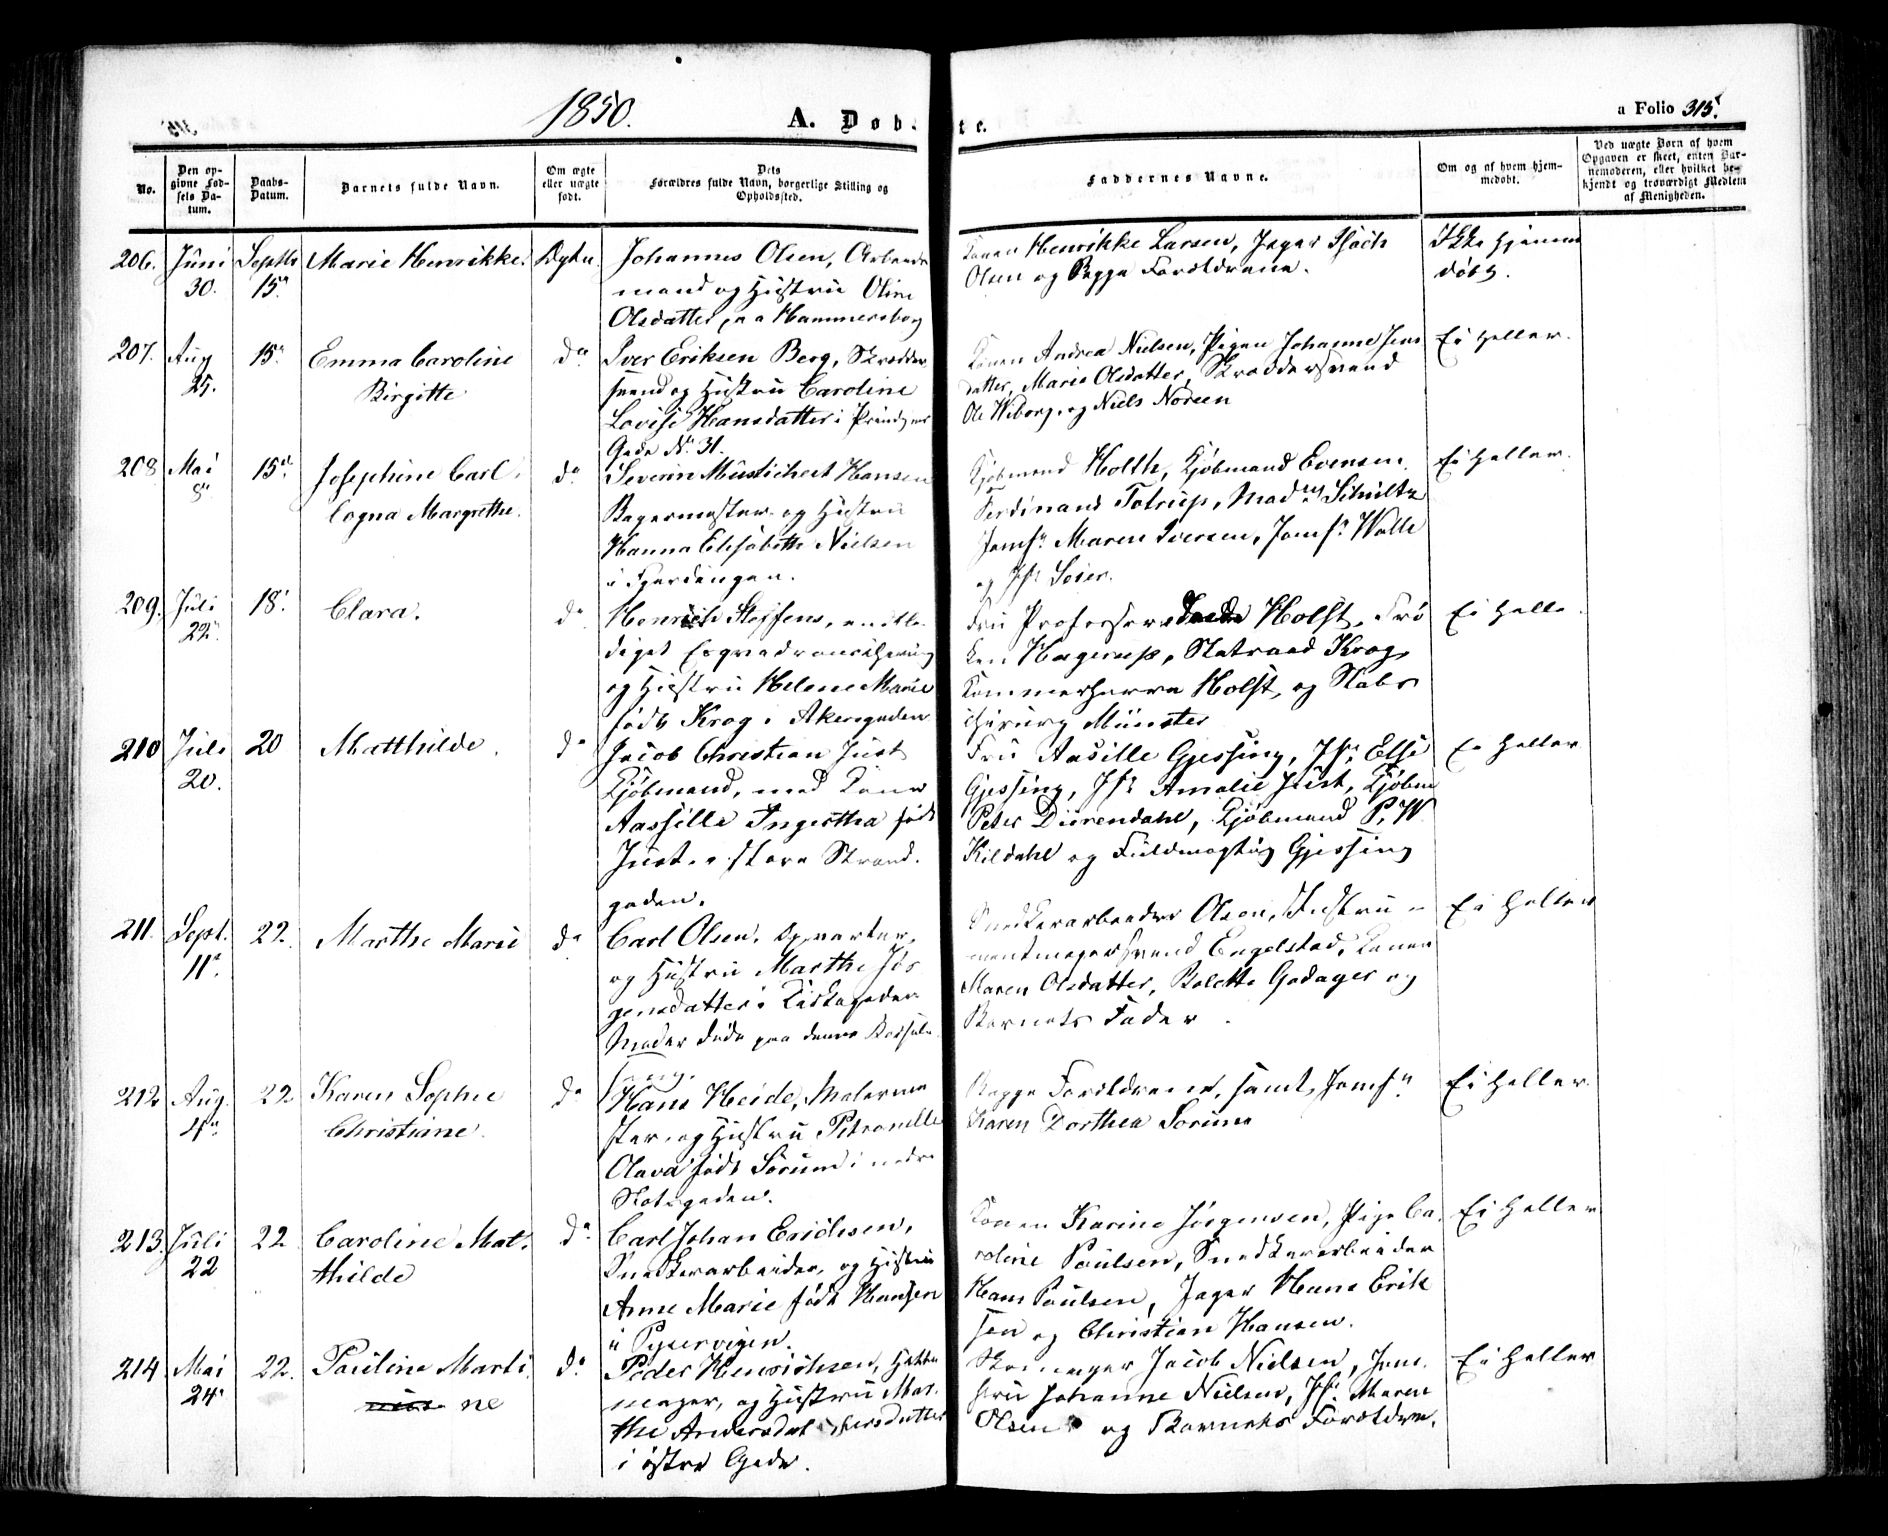 1850.
A. Døbte.
a Folio 315.
No.
Den op-
givne Fød-
sels Da-
tum.
Daabs-
Datum.
Barnets fulde Navn.
Om ægte
eller uægte
født.
Dets
Forældres fulde Navn, borgerlige Stilling og
Opholdssted.
Faddernes Navne.
Om og af hvem hjem-
medøbt.
Ved uægte Børn af hvem
Opgaven er skeet, enten Bar-
nemoderen, eller hvilket be-
kjendt og troværdigt Medlem
af Menigheden.
206. Juni 30. Septbr 15 Marie Henrikke. Ægte.
Johannes Olsen, Arbeids
mand og Hustru Oline
Olsdatter, paa Hammersborg
Konen Henrikke Larsen, Jæger
Olsen og Begge Forældrene.
Ikke hjemme
døbt.
207. Aug 25. 15 Emma Caroline
Birgitte
do
Iver Eriksen Berg, Skrædder
svend og Hustru Caroline
Lovise Hansdatter i Prindsens
Gade No. 31.
Konen Andrea Nielsen, Pigen Johanne Jens
datter, Marie Olsdatter, Skræddersvend
Ole Wiborg, og Niels Norsen
Ei heller.
208 Mai 8 15 Josephine Carl
Cogna Margrethe.
do
Severin Hansen
Bagermester og Hustru
Hanna Elisabeth Nielsen
i Fjerdingen.
Kjøbmand Holth, Kjøbmand Evensen
Ferdinand Totrup, Mad. Schultz
Jomfr Maren Iversen, Jomfr Walle
og Jfr
Ei heller.
209. Juli 22 18 Clara.
do
Henrich Steffens,
diget
og Hustru Helene Marie
født Krog i Akersgaden
Fru Professor Holst, Frø
ken Hagerup, Statraad Krog,
Kammerherre Holst, og Stabs
chirurg Münster
Ei heller
210 Juli 20. 20 Matthilde.
do
Jacob Christian Just
Kjøbmand, med Kone
Aassille Ingertha født
Just i store Strand-
gaden.
Fru Aasille Gjessing, Jfr Else
Gjessing, Jfr Amalie Just, Kjøbm
Peter Duerendahl, Kjøbmand P. W.
Kildahl og Fuldmægtig Gjessing
Ei heller
211. Sept. 11 22. Marthe Marie
do
Carl Olsen, Opvarter,
og Hustru Marthe Jør
gensdatter i
Moder døde paa denne Barsel
seng.
Snedkerarbeider Olsen, Instru-
mentmagersvend Engelstad, Konen
Maren Olsdatter, Bolette Godager og
Barnets Fader.
Ei heller
212 Aug. 22 Karen Sophie
Christiane.
do
Hans Heide, Malerme
ster, og Hustru Petronelle
Olava født Sørum i nedre
Slotsgaden.
Begge Forældrene, samt Jomfr
Karen Dorthea Sorum
Ei heller
213. Juli 22 22 Caroline Mat-
thilde
do
Carl Johan Erichsen,
Snedkerarbeider, og Hustru
Anne Marie født Hansen
i Pipervigen.
Konen Karine Jørgensen, Pige Ca-
roline Poulsen, Snedkerarbeider
Hans Poulsen, Jæger Hans Erik
sen og Christian Hansen.
Ei heller
214 Mai 24. 22. Pauline Marti
ne
do
Peder Henrichsen, Hatte
mager, og Hustru Mar-
the Andersdatter
i østre Gade.
Skomager Jacob Nielsen, Jom-
fru Johanne Nielsen, Jfr Maren
Olsen og Barnets Forældre.
Ei heller